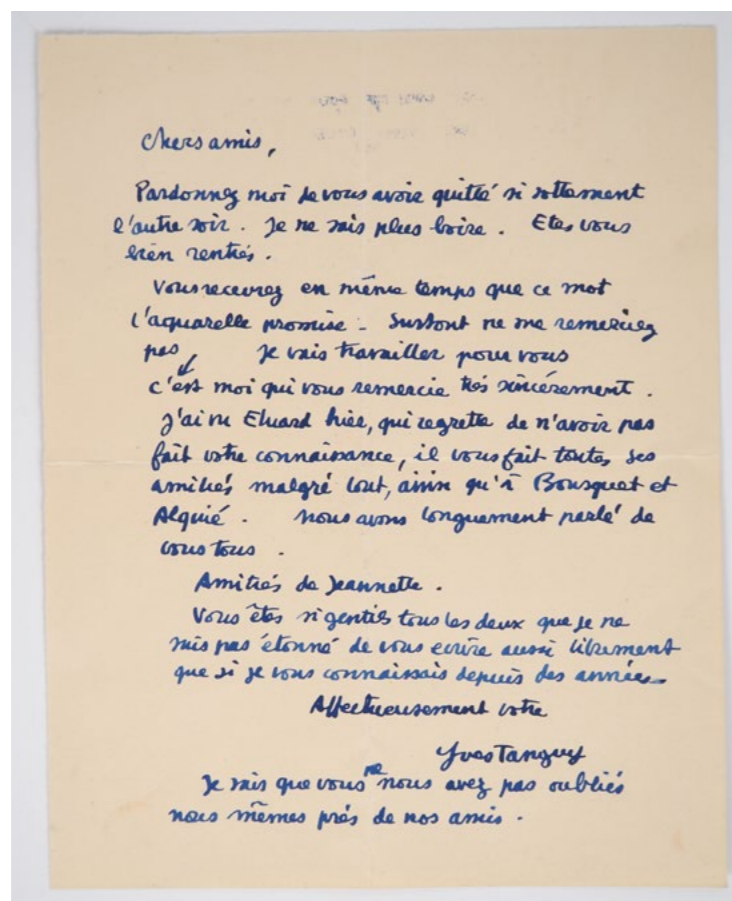 Chers amis,
Pardonnez moi de vous avoir quitté si sottement
l'autre soir. Je ne sais plus boire. Etes vous
bien rentrés.
Vous recevrez en même temps que ce mot
l'aquarelle promise - Surtout ne me remerciez
pas Je vais travailler pour vous
c'est moi qui vous remercie très sincèrement.
J'ai vu Eluard hier, qui regrette de n'avoir pas
fait votre connaissance, il vous fait toutes ses
amitiés malgré tout, ainsi qu'à Bousquet et
Alquié. Nous avons longuement parlé de
vous tous.
Amitiés de Jeannette.
Vous êtes si gentils tous les deux que je ne
suis pas étonné de vous ecrire aussi librement
que si je vous connaissais depuis des années-
Affectueusement votre
Yves Tanguy
Je sais que vous ne nous avez pas oubliés
nous mêmes près de nos amis.